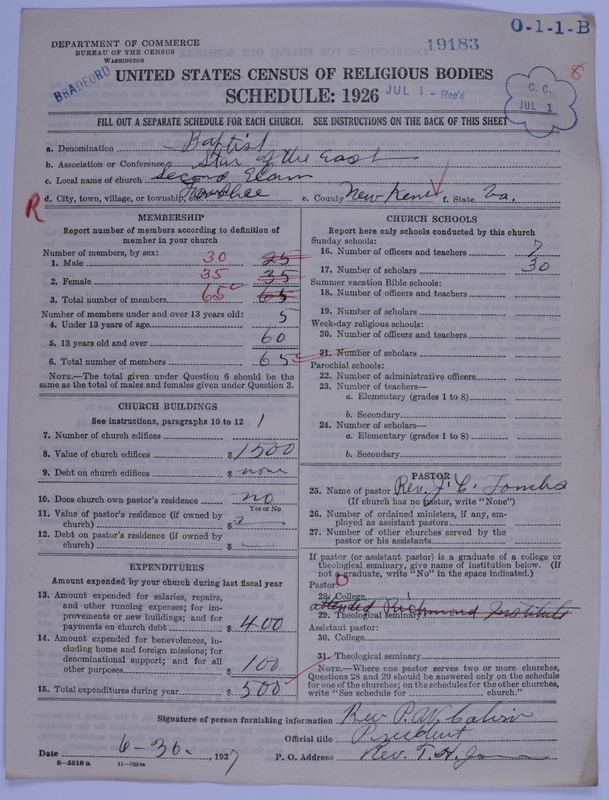 O-1-1-B
DEPARTMENT OF COMMERCE
BUREAU OF THE CENSUS
WASHINGTON
19183
BRADFORD
UNITED STATES CENSUS OF RELIGIOUS BODIES
SCHEDULE: 1926
JUL 1 - Rec'd
C. C.
JUL 1
8
FILL OUT A SEPARATE SCHEDULE FOR EACH CHURCH. SEE INSTRUCTIONS ON THE BACK OF THIS SHEET
a. Denomination Baptist
b. Association or Conference Star of the East
c. Local name of church Second Elam
d. City, town, village, or township, etc. e. County New Kent f. State Va.
R
MEMBERSHIP
Report number of members according to definition of member in your church
Number of members, by sex:
1. Male 30 25
2. Female 35 35
3. Total number of members 65 65
Number of members under and over 13 years old:
4. Under 13 years of age 5
5. 13 years old and over 60
6. Total number of members 65
NOTE.—The total given under Question 6 should be the same as the total of males and females given under Question 3.
CHURCH BUILDINGS
See instructions, paragraphs 10 to 12
7. Number of church edifices 1
8. Value of church edifices $ 1500
9. Debt on church edifices $ none
10. Does church own pastor's residence no
Yes or No
11. Value of pastor's residence (if owned by church) $
12. Debt on pastor's residence (if owned by church) $
EXPENDITURES
Amount expended by your church during last fiscal year
13. Amount expended for salaries, repairs, and other running expenses; for improvements or new buildings; and for payments on church debt $ 400
14. Amount expended for benevolences, including home and foreign missions; for denominational support; and for all other purposes $ 100
15. Total expenditures during year $ 500
CHURCH SCHOOLS
Report here only schools conducted by this church
Sunday schools:
16. Number of officers and teachers 7
17. Number of scholars 30
Summer vacation Bible schools:
18. Number of officers and teachers
19. Number of scholars
Week-day religious schools:
20. Number of officers and teachers
21. Number of scholars
Parochial schools:
22. Number of administrative officers
23. Number of teachers—
a. Elementary (grades 1 to 8)
b. Secondary
24. Number of scholars—
a. Elementary (grades 1 to 8)
b. Secondary
PASTOR
25. Name of pastor Rev. J. C. Tombs
(If church has no pastor, write "None")
26. Number of ordained ministers, if any, employed as assistant pastors
27. Number of other churches served by the pastor or his assistants
If pastor (or assistant pastor) is a graduate of a college or theological seminary, give name of institution below. (If not a graduate, write "No" in the space indicated.)
Pastor:
28. College
attended Richmond Institute
29. Theological seminary
Assistant pastor:
30. College
31. Theological seminary
NOTE.—Where one pastor serves two or more churches, Questions 28 and 29 should be answered only on the schedule for one of the churches; on the schedules for the other churches, write "See schedule for church."
Signature of person furnishing information Rev P. W.
Official title President
Date 6-30, 1927 P. O. Address Rev. T. H.
8-5518a